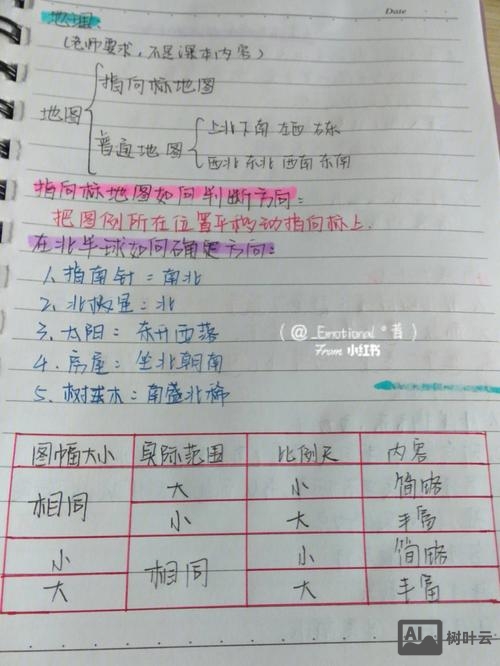 地理
Date
(老师要求，不是课本内容)
地图
指向标地图
普通地图
上北下南 左西 右东
西北 东北 西南 东南
指向标地图如何判断方向：
把图例所在位置平移动指向标上.
在北半球如何确定方向：
1. 指南针：南北
2. 北极星：北
3. 太阳：东升西落
4. 房屋：坐北朝南
5. 树木：南盛北稀
(@_Emotional°昔)
From 小红书
图幅大小 实际范围 比例尺 内容
相同 大 小 简略
小 大 丰富
小 相同 小 简略
大 大 丰富
AI 树叶云